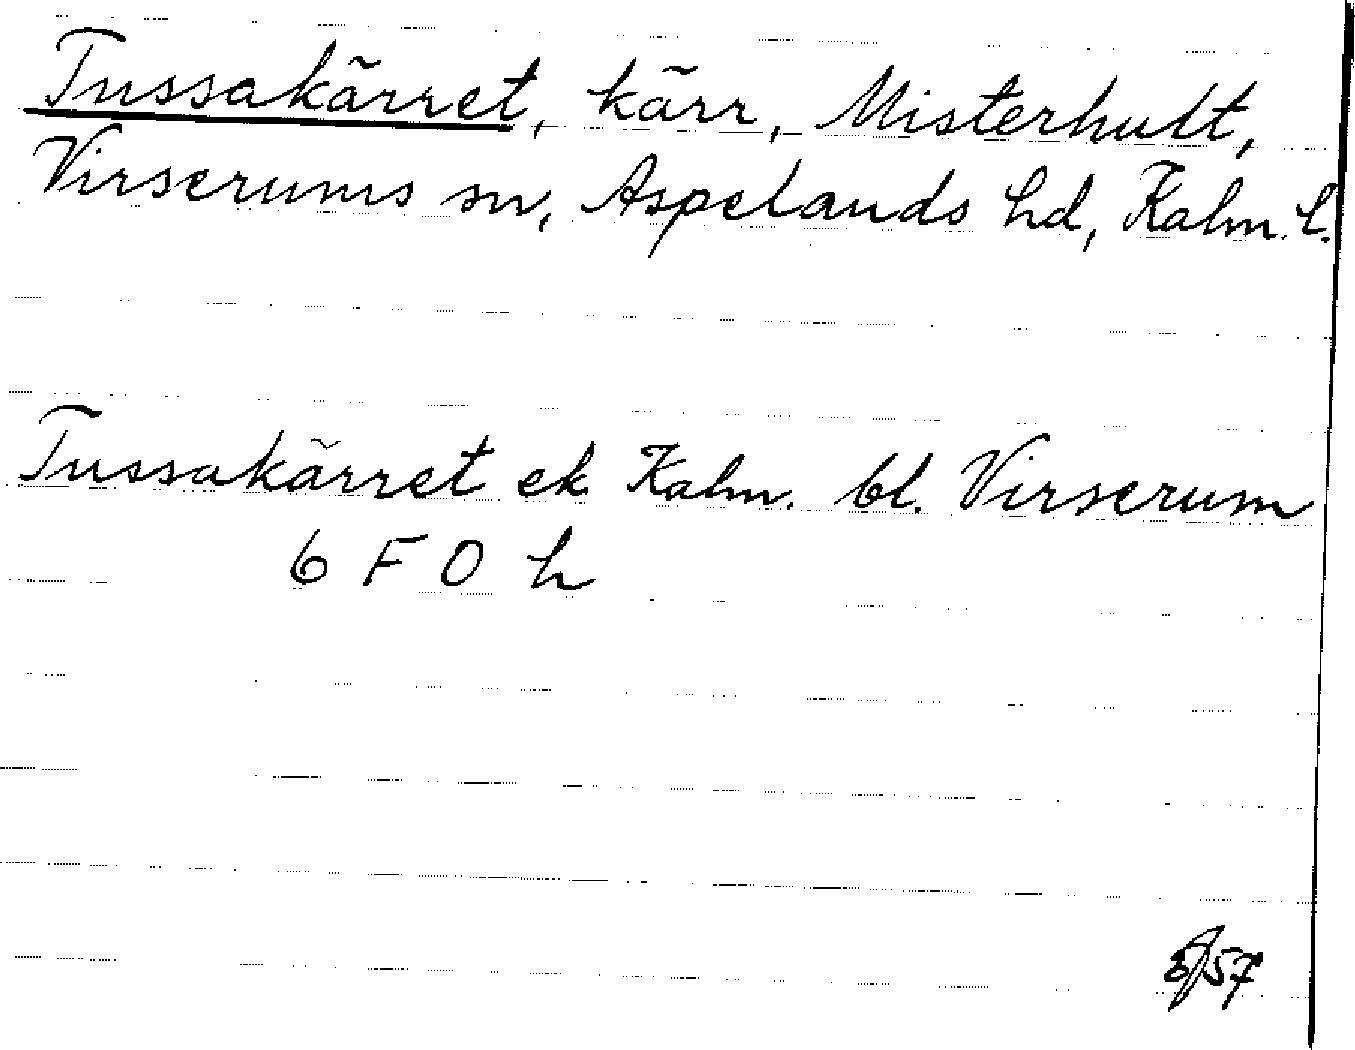 Tussakärret, kärr, Misterhult,
Virserums sn, Aspelands hd, Kalm. l.
Tussakärret ek Kalm. bl. Virserum
6 F O h